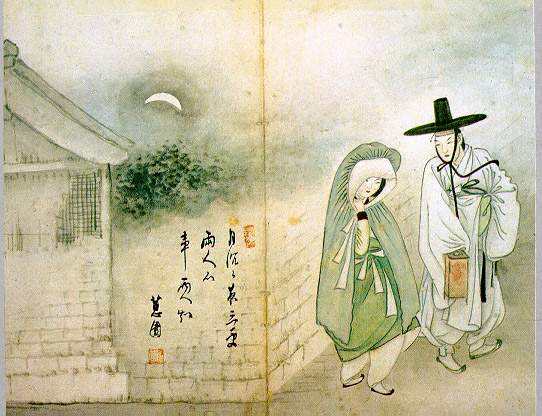 月沉々夜三更
兩人心
事兩人知
蕙園